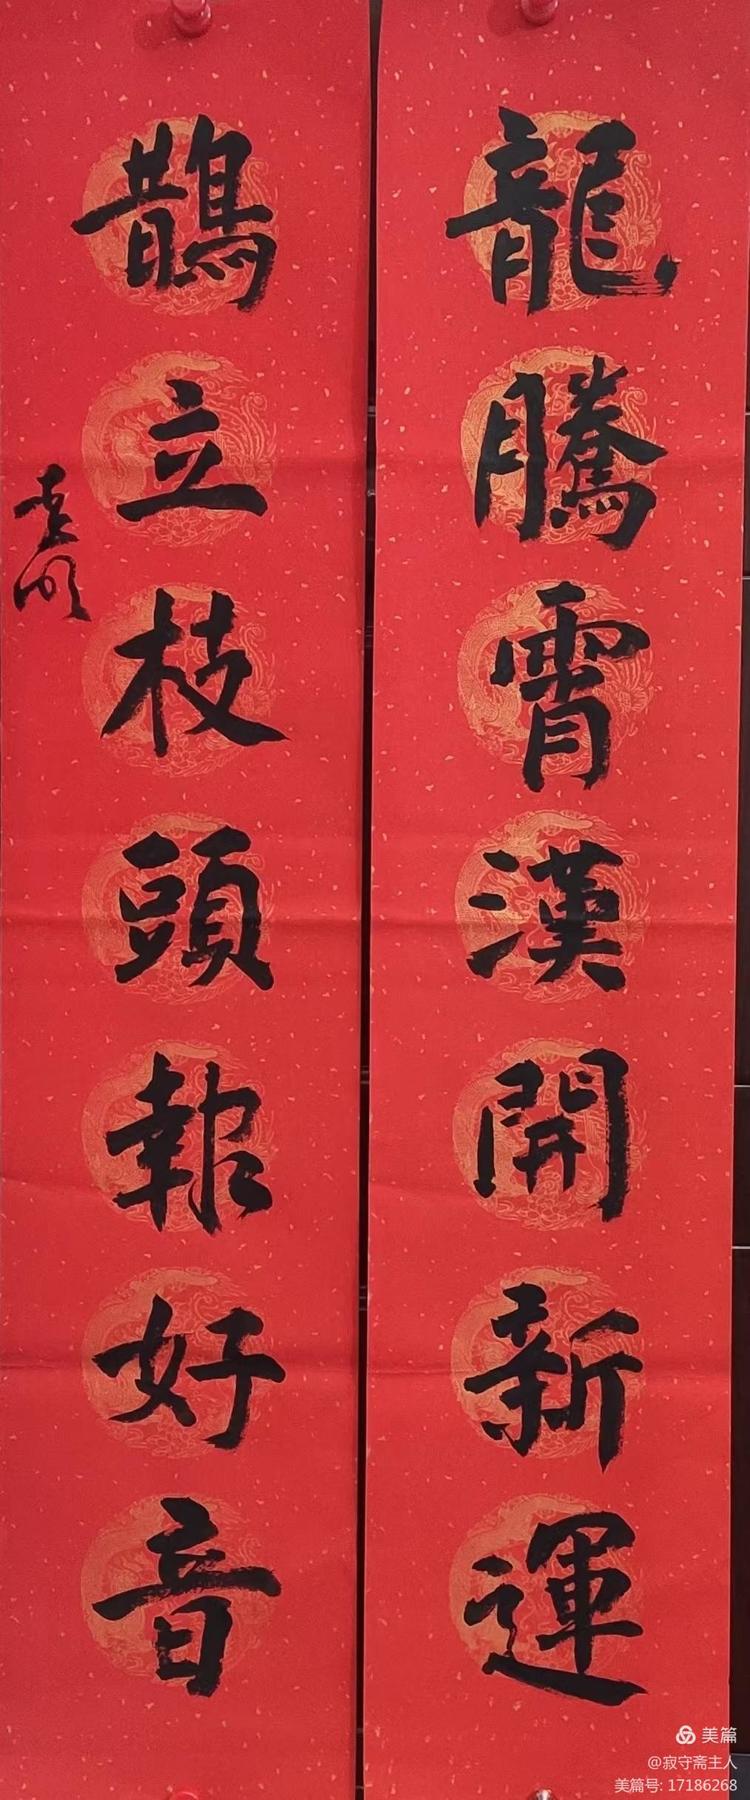 龍騰霄漢開新運
鵲立枝頭報好音
美篇
@寂守斋主人
美篇号: 17186268